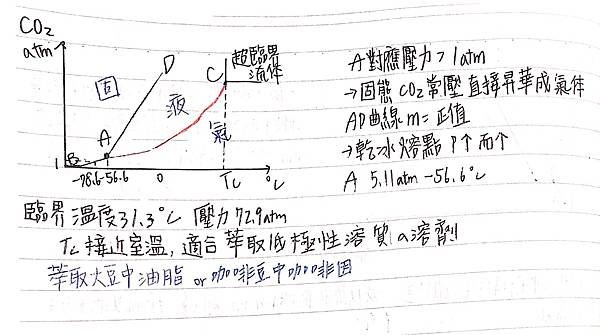 CO2
atm
D
C
超臨界
流体
固
液
氣
A
B
1
-78.6 -56.6 0 Tc °c
A對應壓力 > 1atm
→固態CO2常壓直接昇華成氣体
AD曲線 m= 正值
→乾冰熔點 P↑而↑
A 5.11atm -56.6°c
臨界溫度31.3°c 壓力72.9atm
Tc接近室溫, 適合萃取低極性溶質の溶劑
萃取大豆中油脂 or 咖啡豆中咖啡因